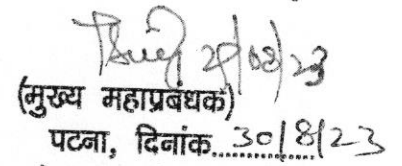 29/08/23
(मुख्य महाप्रबंधक)
पटना, दिनांक..30/8/23